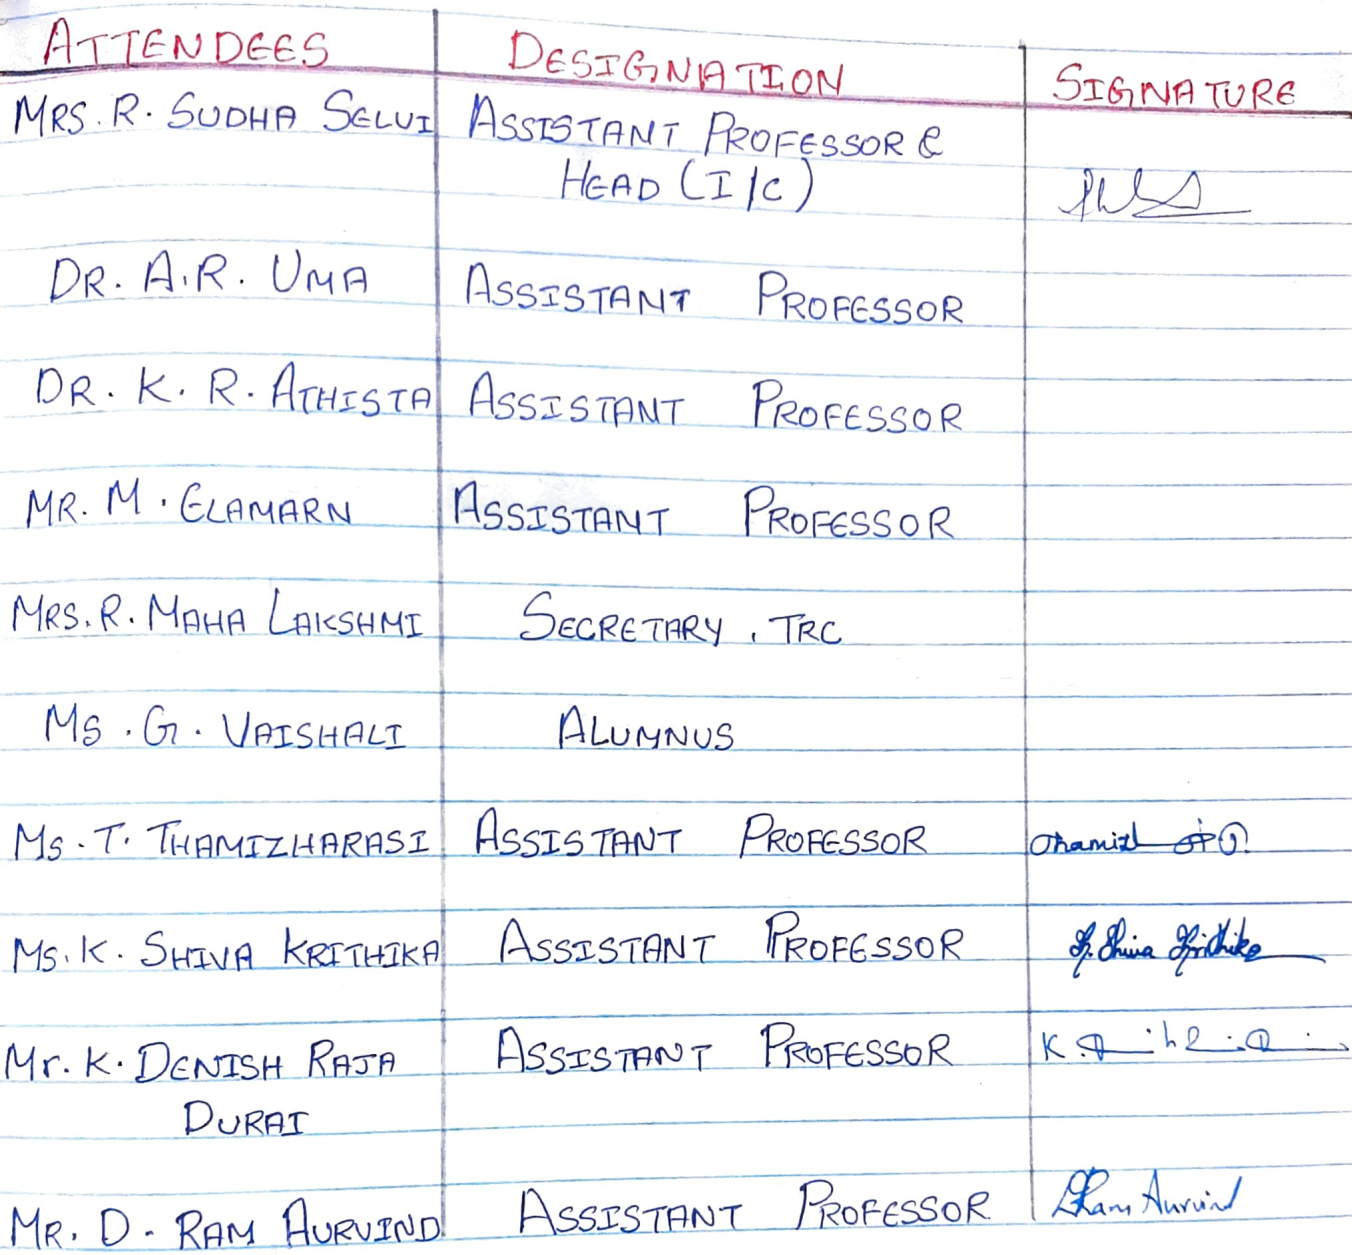 ATTENDEES DESIGNATION SIGNATURE
MRS. R. SUDHA SELVI ASSISTANT PROFESSOR &
HEAD (I/C)
DR. A.R. UMA ASSISTANT PROFESSOR
DR. K. R. ATHISTA ASSISTANT PROFESSOR
MR. M. ELAMARN ASSISTANT PROFESSOR
MRS. R. MAHA LAKSHMI SECRETARY, TRC
MS. G. VAISHALI ALUMNUS
MS. T. THAMIZHARASI ASSISTANT PROFESSOR
MS. K. SHIVA KRITHIKA ASSISTANT PROFESSOR K. Shiva Krithika
Mr. K. DENISH RAJA ASSISTANT PROFESSOR
DURAI
MR. D. RAM AURVIND ASSISTANT PROFESSOR D Ram Aurvind